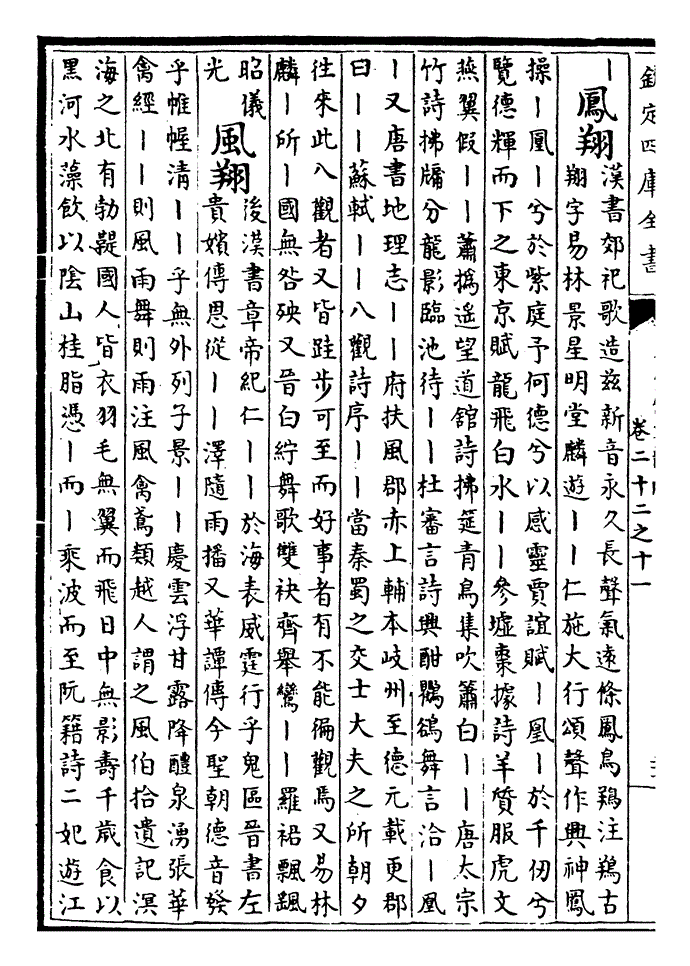 欽定四庫全書
卷二十二之十一
丨
鳳翔
漢書郊祀歌造兹新音永久長聲氣遠條鳳鳥鴹注鴹古
翔字易林景星明堂麟遊丨丨仁施大行頌聲作興神鳳
操丨凰丨兮於紫庭予何德兮以感靈賈誼賦丨凰丨於千仞兮
覽德輝而下之東京賦龍飛白水丨丨參墟棗據詩羊質服虎文
燕翼假丨丨蕭撝遥望道舘詩拂筵青鳥集吹簫白丨丨唐太宗
竹詩拂牖分龍影臨池待丨丨杜審言詩興酣鸜鵒舞言洽丨凰
丨又唐書地理志丨丨府扶風郡赤上輔本岐州至德元載更郡
曰丨丨蘇軾丨丨八觀詩序丨丨當秦蜀之交士大夫之所朝夕
徃來此八觀者又皆跬步可至而好事者有不能徧觀焉又易林
麟丨所丨國無咎殃又晉白紵舞歌雙袂齊舉鸞丨丨羅裙飄颻
昭儀
光
風翔
後漢書章帝紀仁丨丨於海表威霆行乎鬼區晉書左
貴嬪傳恩從丨丨澤隨雨播又華譚傳今聖朝德音發
乎帷幄清丨丨乎無外列子景丨丨慶雲浮甘露降醴泉湧張華
禽經丨丨則風雨舞則雨注風禽鳶類越人謂之風伯拾遺記溟
海之北有勃鞮國人皆衣羽毛無翼而飛日中無影壽千歲食以
黑河水藻飲以陰山桂脂憑丨而丨乘波而至阮籍詩二妃遊江